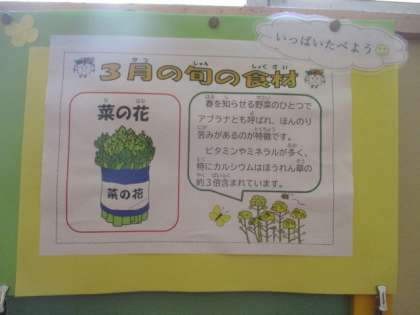 いっぱいたべよう
3月の旬の食材
菜の花
春を知らせる野菜のひとつで
アブラナとも呼ばれ、ほんのり
苦みがあるのが特徴です。
ビタミンやミネラルが多く、
特にカルシウムはほうれん草の
約3倍含まれています。
菜の花